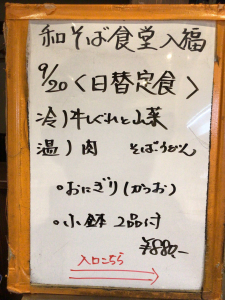 和そば食堂入福
9/20〈日替定食〉
冷)牛しぐれと山菜
温)肉 そばうどん
。おにぎり(かつお)
。小鉢 2品付
¥880,-
入口こちら